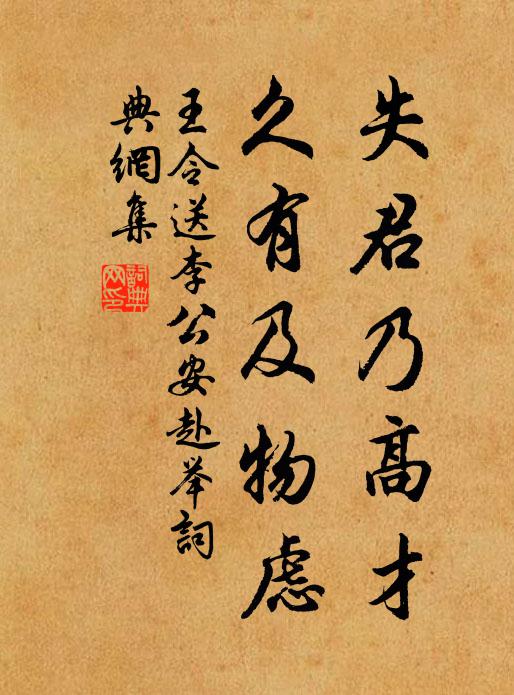 失君乃高才
久有及物慮
王令送李公安赴举詞
典網集
詞典網印